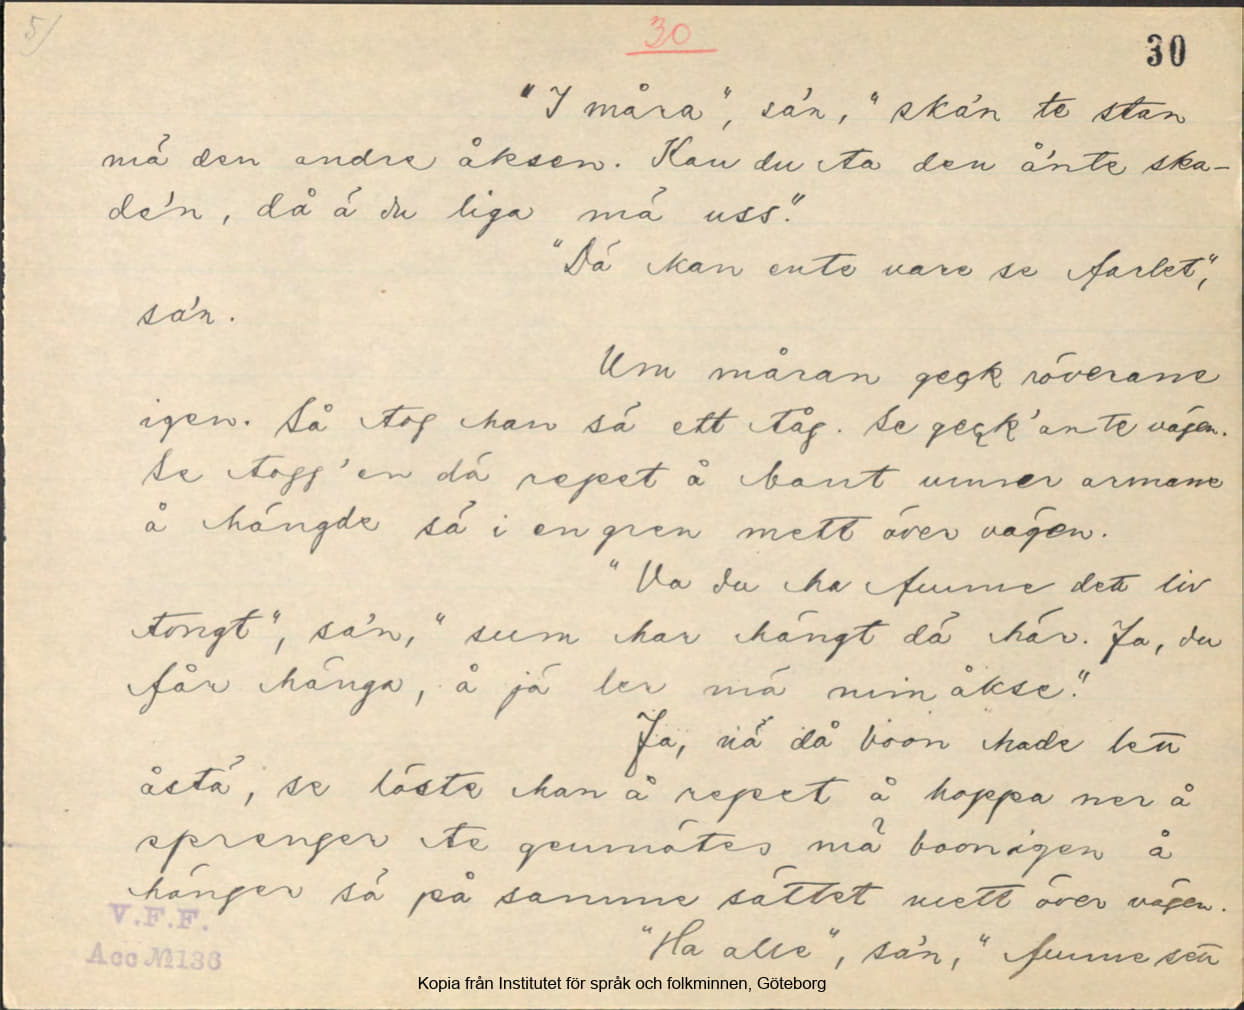 5/
30
30
"I måra", sa'n, "ska'n te stan
må den andre åksen. Kan du ta den å'nte ska-
de'n, då á du liga má uss."
"Dá kan ente vare se farlet",
sa'n.
Um måran geck röverane
igen. Så tog han sá ett tåg. Se geck'an te vágen.
Se togg'en dá repet å bant unner armane
å hángde sá i en gren mett över vágen.
"Va du ha funne dett liv
tongt", sa'n, "sum har hángt dá hár. Ja, du
får hánga, å já ler má min åkse."
Ja, ná då boon hade lett
åstá, se löste han å repet å hoppa ner å
sprenger te genmötes má boon igen å
hánger sá på samme sáttet mett över vágen.
"Ha alle", sa'n, "funne sett
V.F.F.
Acc № 136
Kopia från Institutet för språk och folkminnen, Göteborg